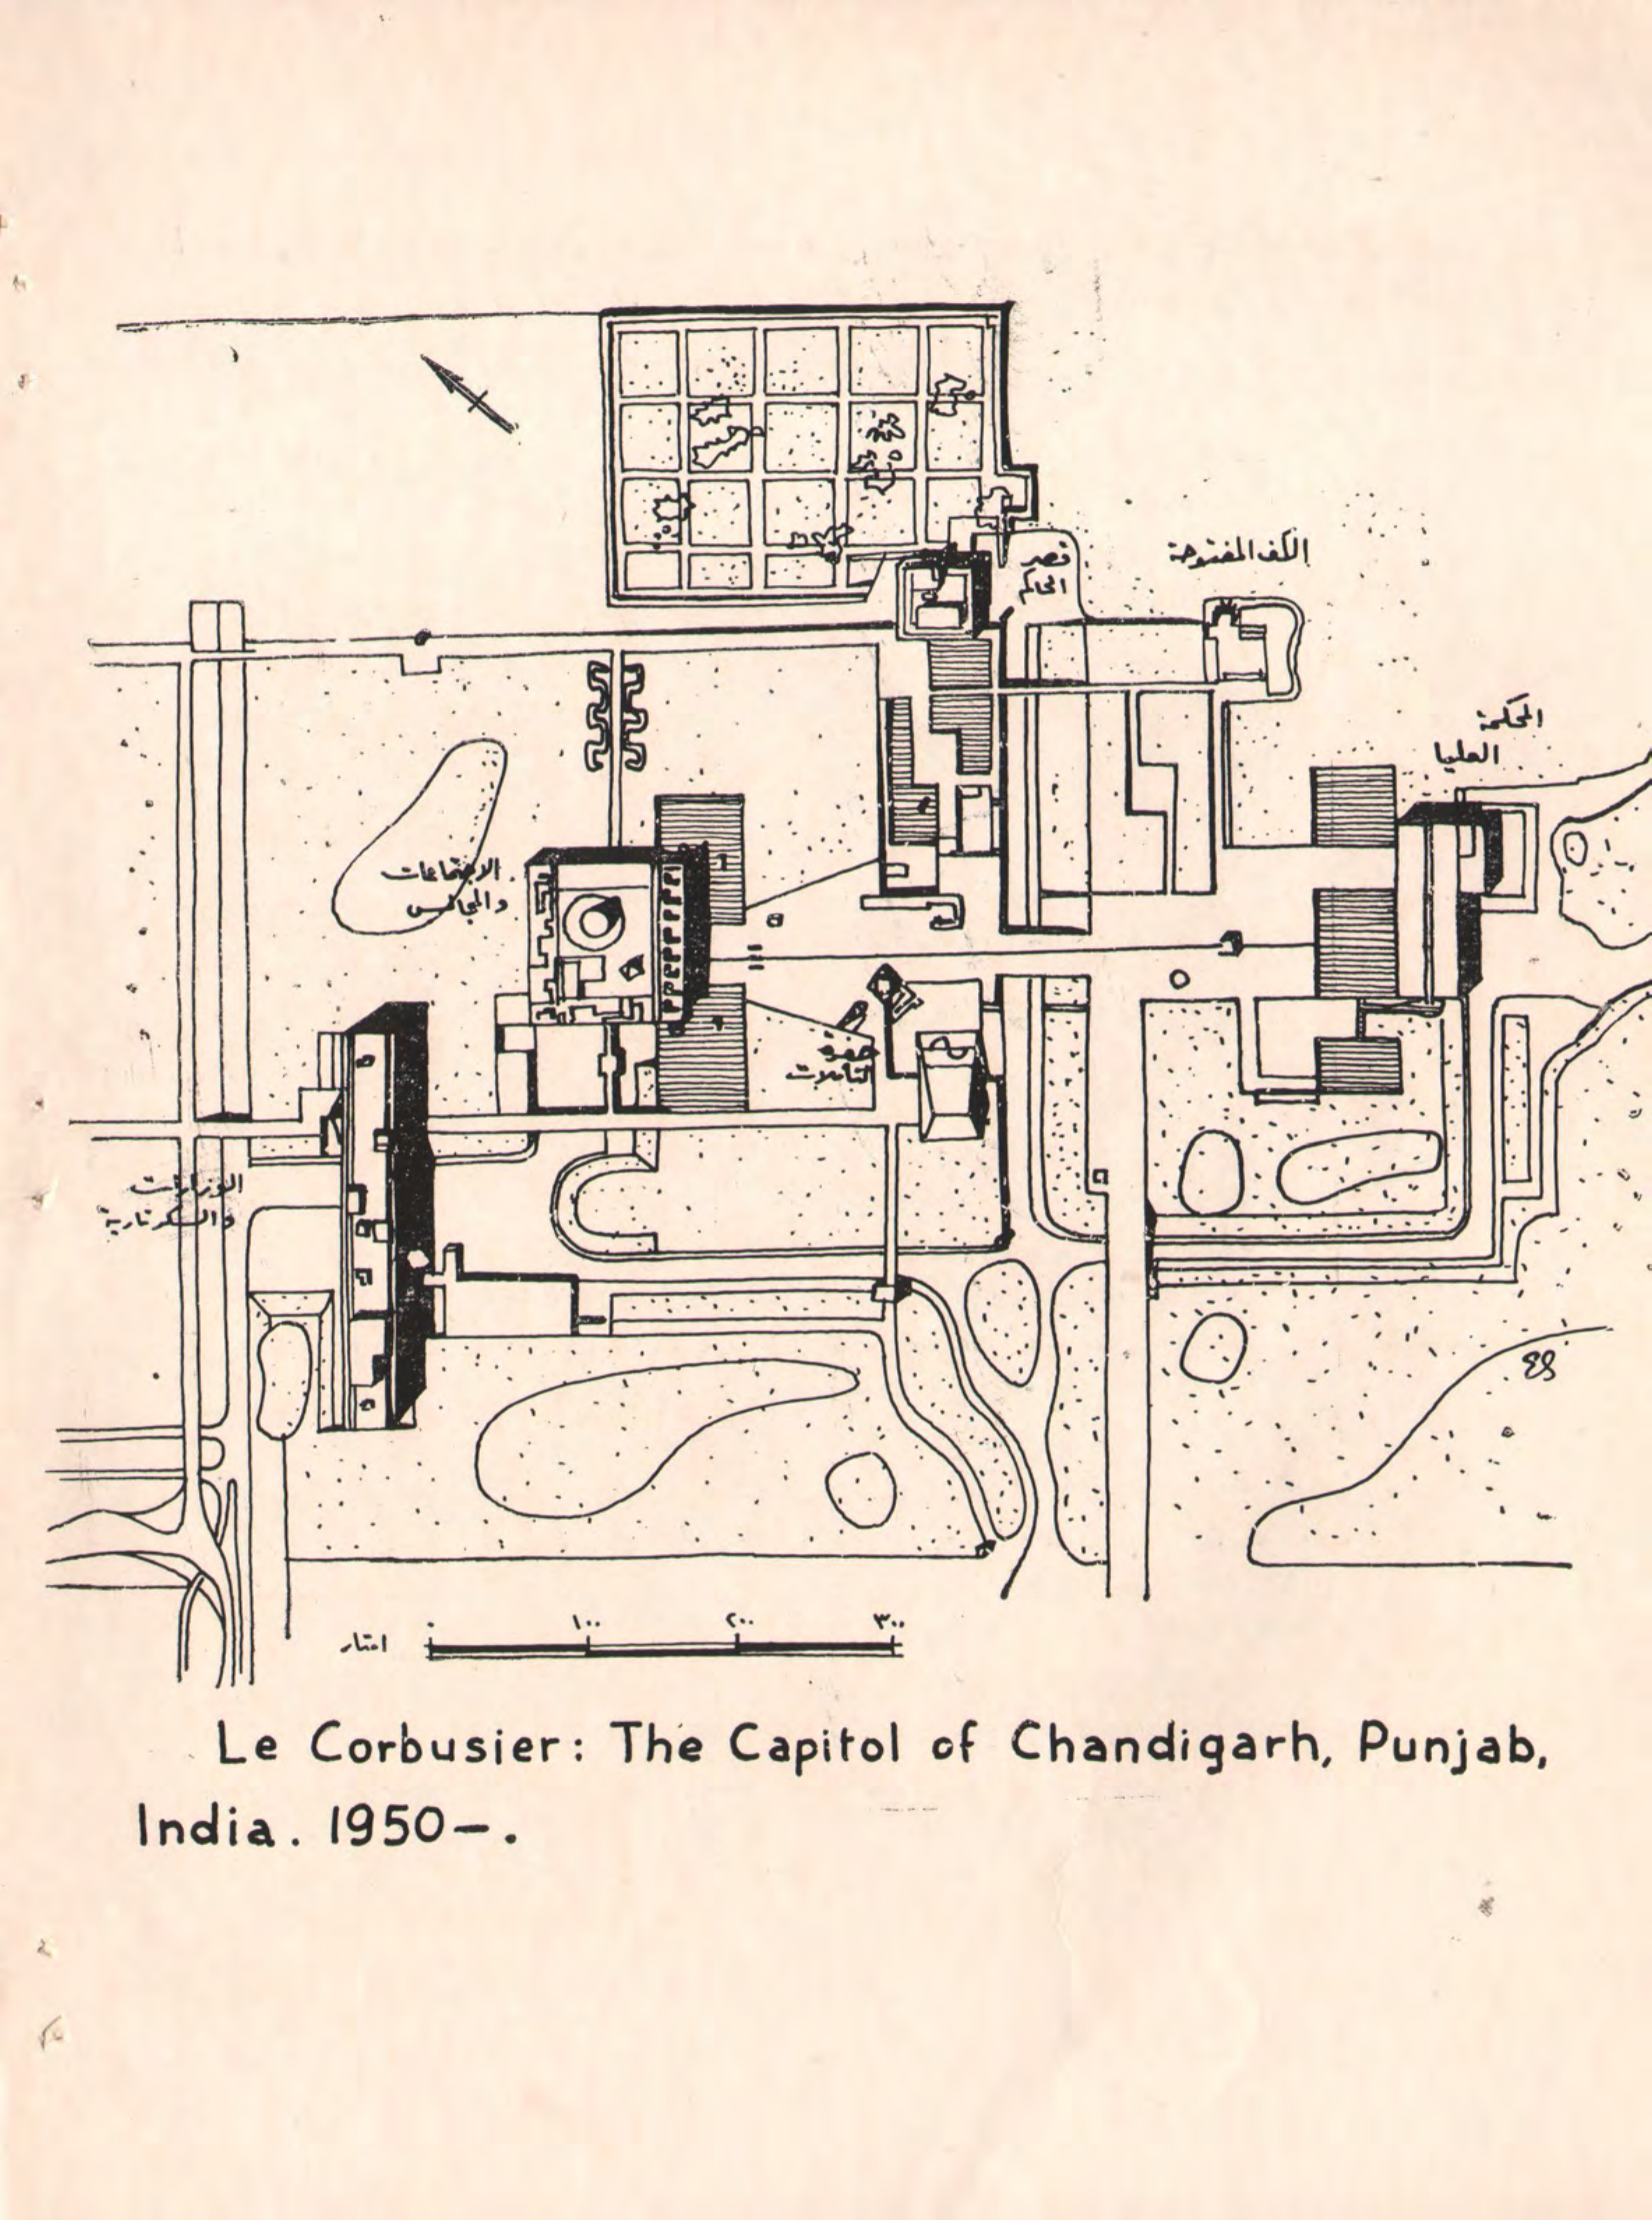 الكف المفتوحة
قصر
الحاكم
المحكمة
العليا
الاجتماعات
والمجالس
حفرة
التأملات
الوزارات
والسكرتارية
امتار
٠ ١٠٠ ٢٠٠ ٣٠٠
Le Corbusier: The Capitol of Chandigarh, Punjab,
India. 1950–.